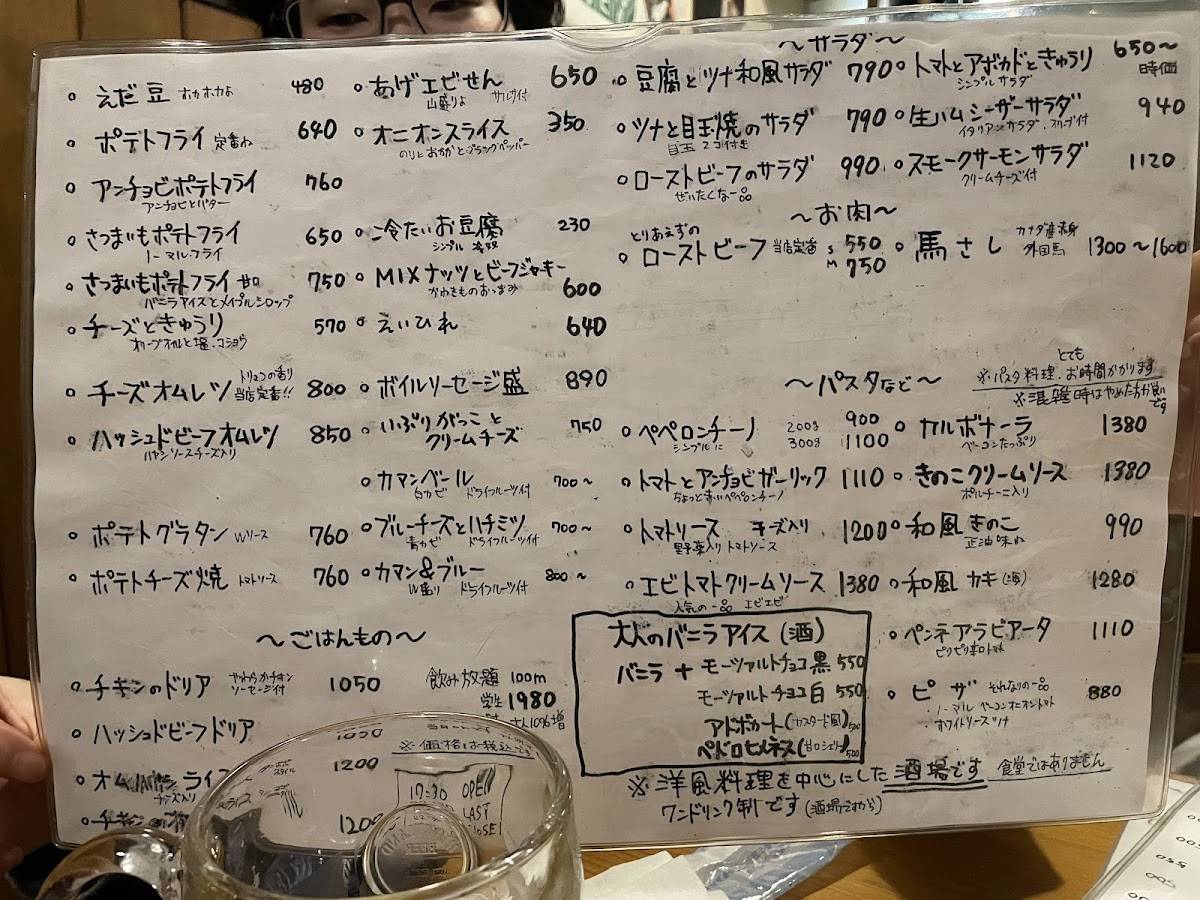 えだ豆 ホカホカよ 480
ポテトフライ 定番ね 640
アンチョビポテトフライ 760
アンチョビとバター
さつまいもポテトフライ 650
ノーマルフライ
さつまいもポテトフライ 甘口 750
バニラアイスとメイプルシロップ
チーズときゅうり 570
オリーブオイルと塩・コショウ
チーズオムレツ トリュフの香り 当店定番!! 800
ハッシュドビーフオムレツ 850
ハヤシソースチーズ入り
ポテトグラタン Wソース 760
ポテトチーズ焼 トマトソース 760
あげエビせん 650
山盛りよ サルサ付
オニオンスライス 350
のりとおかかとブラックペッパー
冷たいお豆腐 230
シンプル
MIXナッツとビーフジャーキー
かわきものおつまみ 600
えいひれ 640
ボイルソーセージ盛 890
いぶりがっこと
クリームチーズ 750
カマンベール 700~
白カビ ドライフルーツ付
ブルーチーズとハチミツ 700~
青カビ ドライフルーツ付
カマン&ブルー 800~
W盛り ドライフルーツ付
~ごはんもの~
チキンのドリア やわらかチキン ソーセージ付 1050
ハッシュドビーフドリア 1050
1200
チーズ入り
チキンの
1200
飲み放題 100m
学生 1980
大人10%増
※価格は税込です
17:30 OPEN
LAST
~サラダ~
豆腐とツナ和風サラダ 790
ツナと目玉焼のサラダ 790
目玉 2コ付き
ローストビーフのサラダ 990
ぜいたくな一品
トマトとアボカドときゅうり 650~
シンプルサラダ 時価
生ハムシーザーサラダ 940
イタリアンサラダ
スモークサーモンサラダ 1120
クリームチーズ付
~お肉~
とりあえずの
ローストビーフ 当店定番 S 550
M 750
馬さし カナダ産赤身 外国馬 1300~1600
~パスタなど~
※パスタ料理、とてもお時間かかります
※混雑時はやめた方が良いです
ペペロンチーノ 200g 900
シンプルに 300g 1100
トマトとアンチョビガーリック 1110
ちょっと赤いペペロンチーノ
トマトソース チーズ入り 1200
野菜入りトマトソース
エビトマトクリームソース 1380
人気の一品 エビエビ
カルボナーラ 1380
ベーコンたっぷり
きのこクリームソース 1380
ポルチーニ入り
和風きのこ 990
正油味ね
和風カキ(海) 1280
ペンネアラビアータ 1110
ピリピリ辛口トマト
ピザ それなりの一品 880
ノーマル ベーコンオニオントマト
ホワイトソースツナ
大人のバニラアイス(酒)
バニラ + モーツァルトチョコ黒 550
モーツァルトチョコ白 550
アドボカート(カスタード風)
ペドロヒメネス(甘口シェリー) 500
※洋風料理を中心にした酒場です 食堂ではありません
ワンドリンク制です(酒場だから)